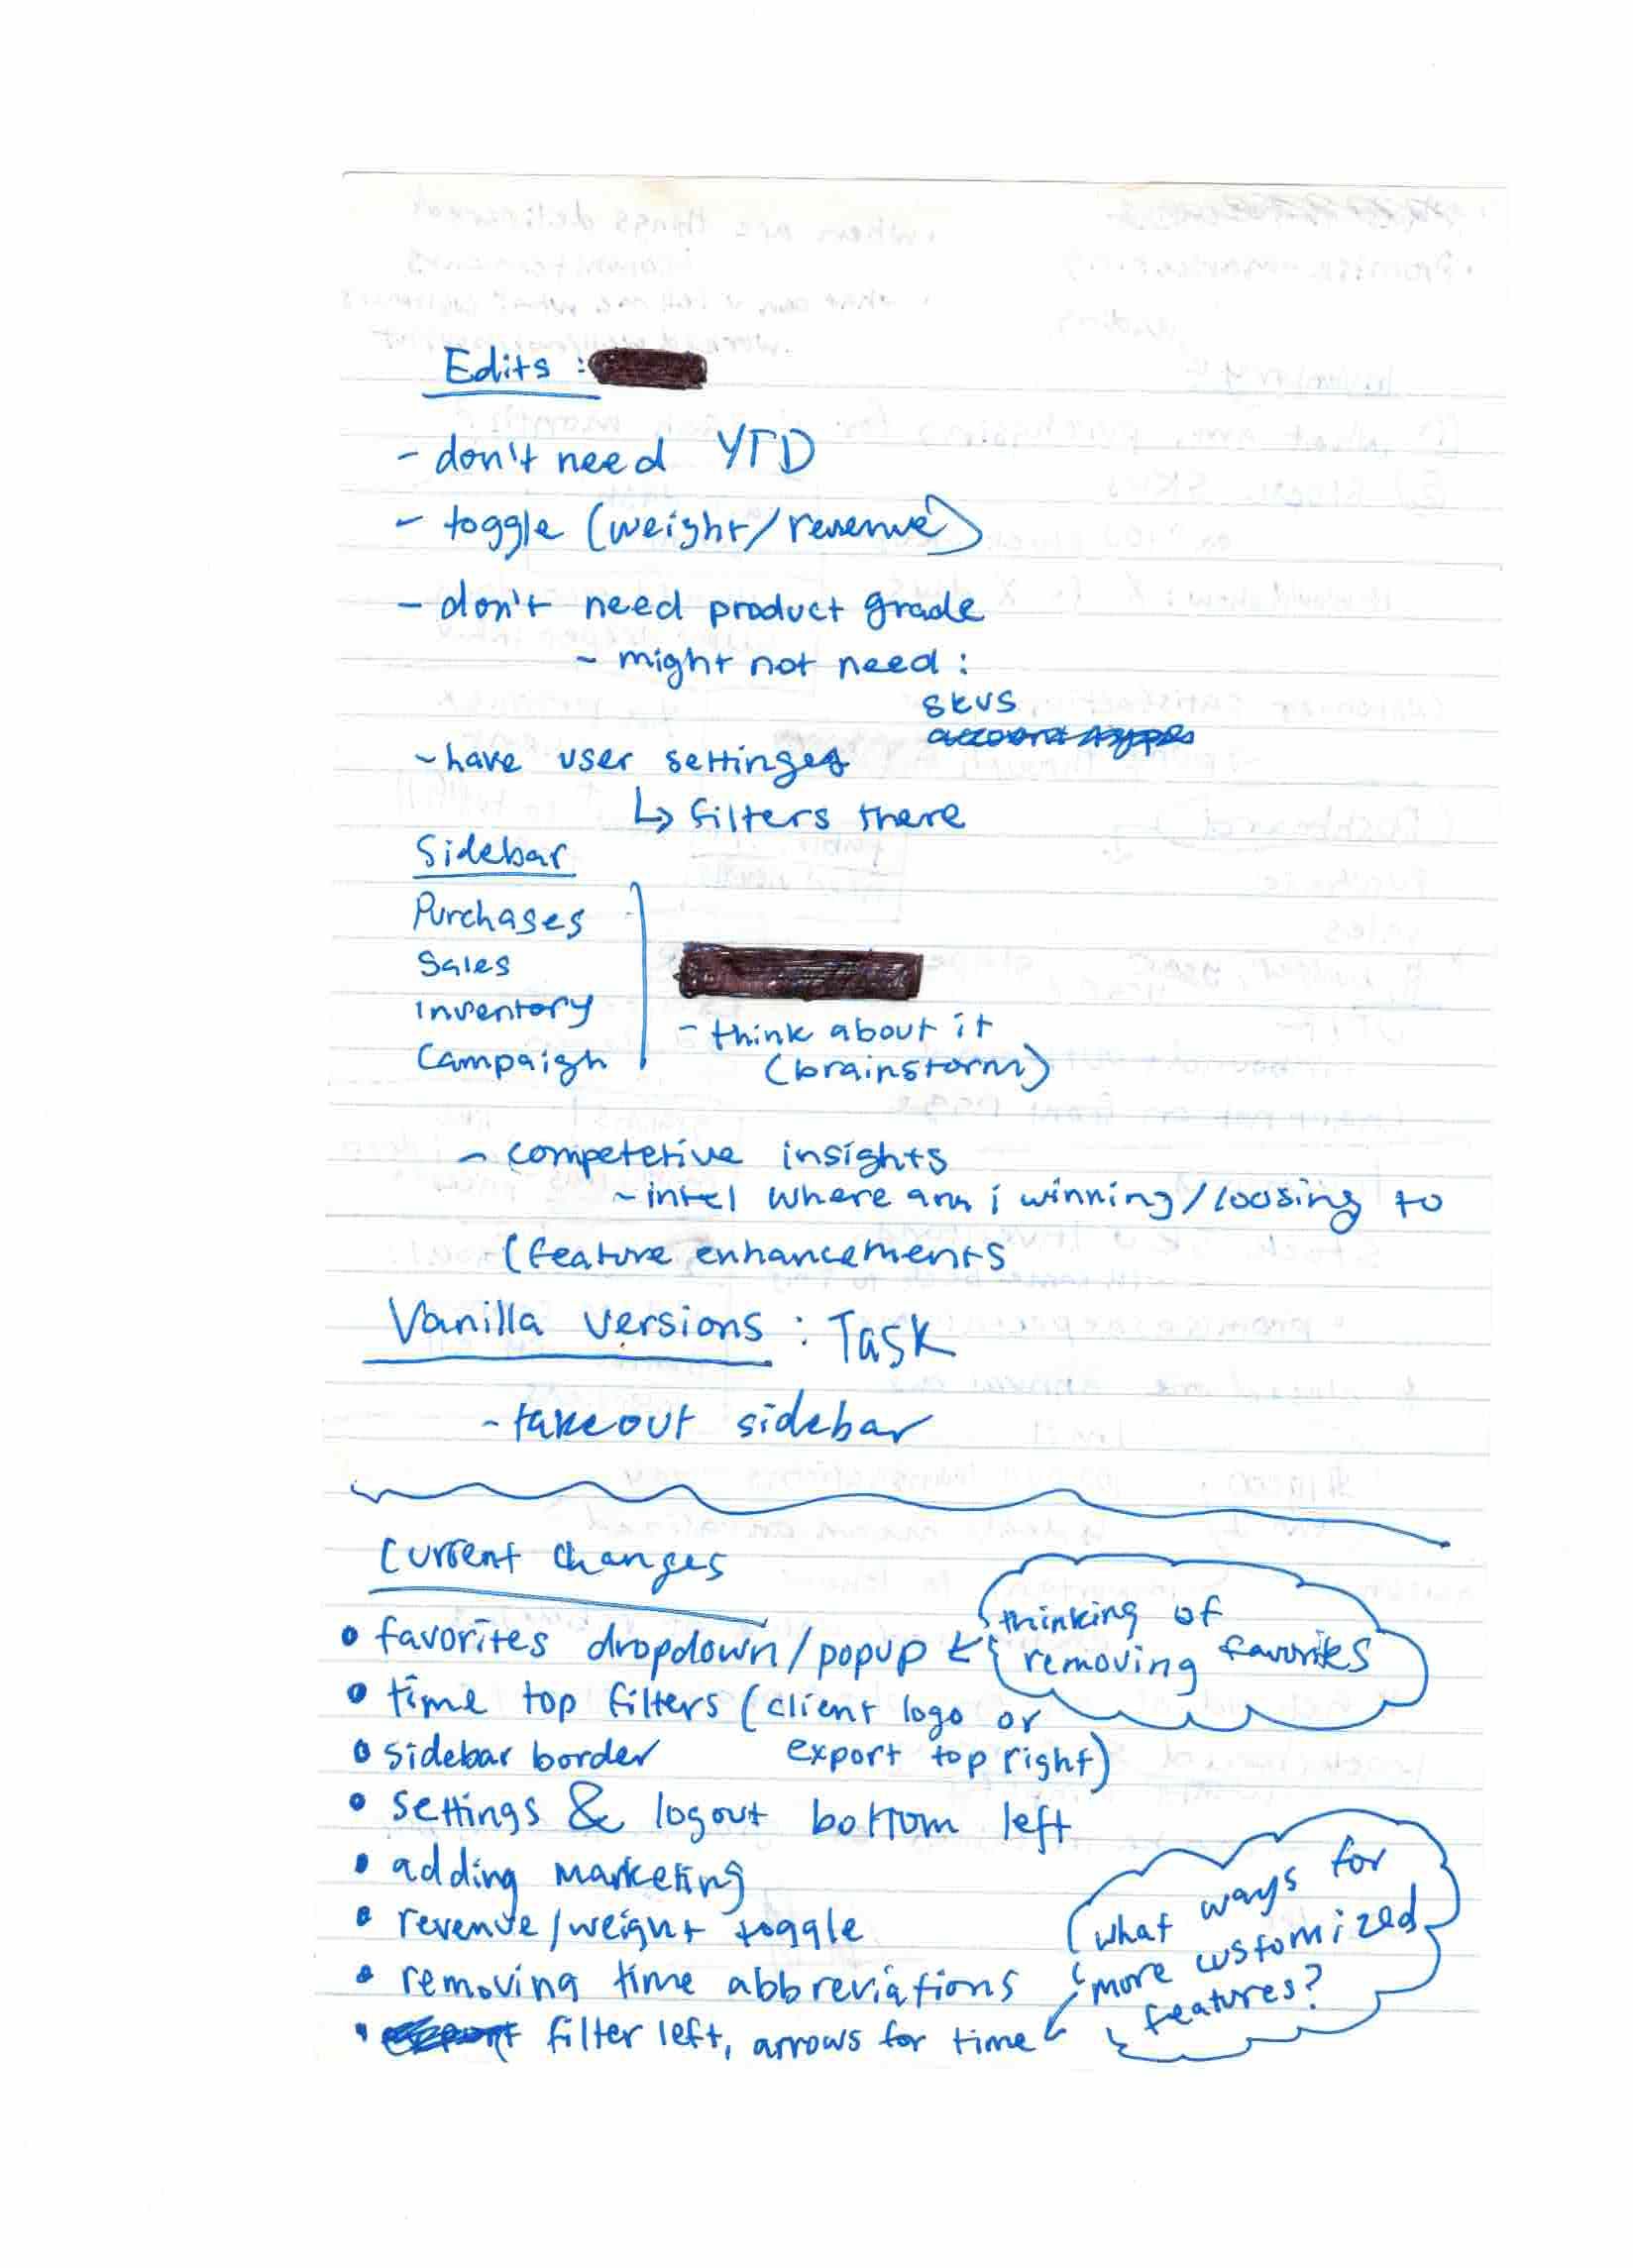 Edits :
- don't need YTD
- toggle (weight/revenue)
- don't need product grade
- might not need :
SKUS
- have user settings
↳ filters there
Sidebar
Purchases
Sales
Inventory
Campaign
- think about it
(brainstorm)
- competetive insights
- intel where am i winning/loosing to
(feature enhancements
Vanilla versions : Task
- takeout sidebar
Current changes
• favorites dropdown/popup ←
thinking of
removing favorites
• time top filters (client logo or
export top right)
• sidebar border
• settings & logout bottom left
• adding marketing
• revenue/weight toggle
• removing time abbreviations
• filter left, arrows for time ←
what ways for
more customized
features?